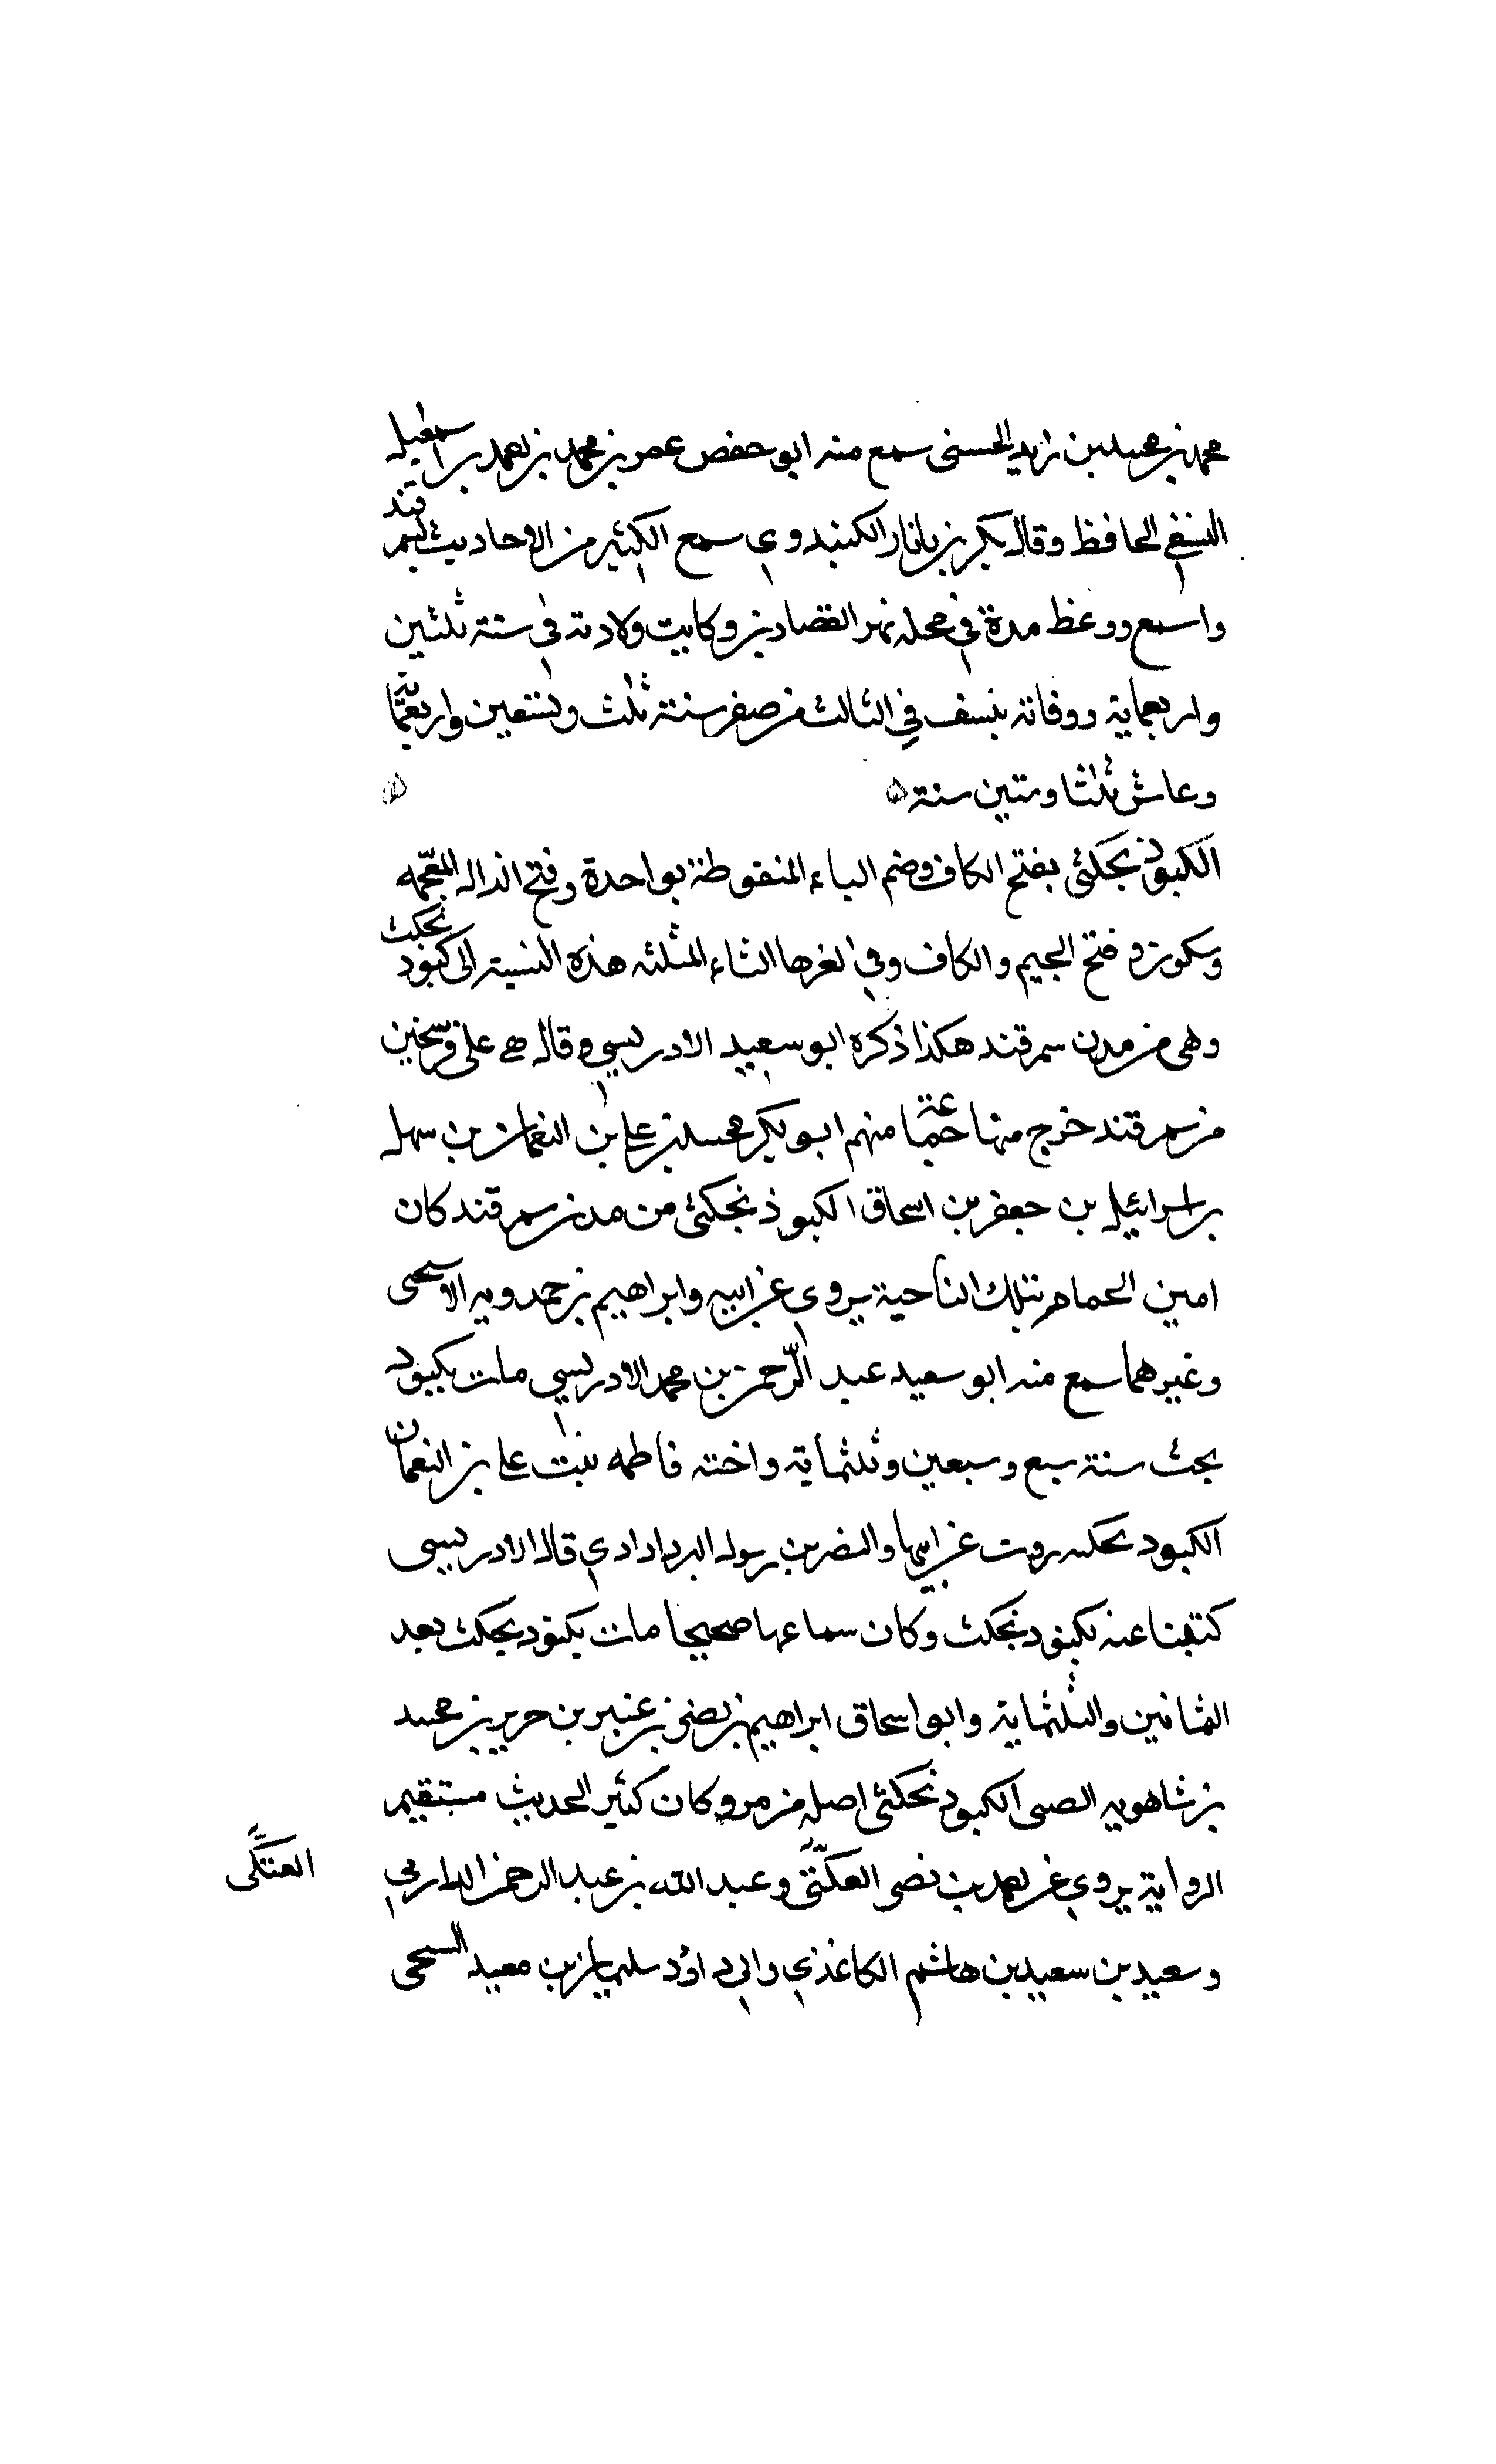 محمد بن محمد بن زيد الحسنى سمع منه ابو حفص عمر بن محمد بن احمد بن اسمعيل
النسفي الحافظ وقال بكر بن بانار الكبندوي سمع الكثير من الاحاديث بسمرقند
واسمع ووعظ مدة في محله نهر القصارين وكانت ولادته في سنة ثلثين
واربعماية ووفاته بنسف في الثالث من صفر سنة ثلث وتسعين واربعماية
وعاش ثلثا وستين سنة
الكبوذنجكثى بفتح الكاف وضم الباء المنقوطة بواحدة وفتح الذال المعجمه
وسكون و فتح الجيم والكاف وفي اخرها الثاء المثلثه هذه النسبة الى كبودنجكث
وهى من مدن سمرقند هكذا ذكره ابو سعيد الادريسي وقال هي على فرسخين
من سمرقند خرج منها جماعة منهم ابو بكر محمد بن على بن النعمان بن سهل
بن اسرائيل بن جعفر بن اسحاق الكبوذنجكثى من مدن سمرقند كان
امين الحمام بتلك الناحية يروي عن ابيه وابراهيم بن حمدويه الاسحى
وغيرهما سمع منه ابو سعيد عبد الرحمن بن محمد الادريسي مات بكبود
نجكث سنة سبع وسبعين وثلثماية واخته فاطمه بنت على بن النعمان
الكبودنجكثيه روت عن ابيها والنضر بن رسول البردادي قال الادريسى
كتبنا عنه بكبودنجكث وكان سماعها صحيحا مات بكبودنجكث بعد
الثمانين والثلثماية وابو اسحاق ابراهيم بن نصر بن عنبر بن جرير بن محمد
بن شاهويه الضبى الكبوذنجكثى اصله من مرو وكان كثير الحديث مستقيم
الرواية يروي عن احمد بن نصر العتكى وعبد الله بن عبد الرحمن الدارمي
العتكى
وسعيد بن سعيد بن هاشم الكاغذي وابى داود سليمان بن معبد السنجى